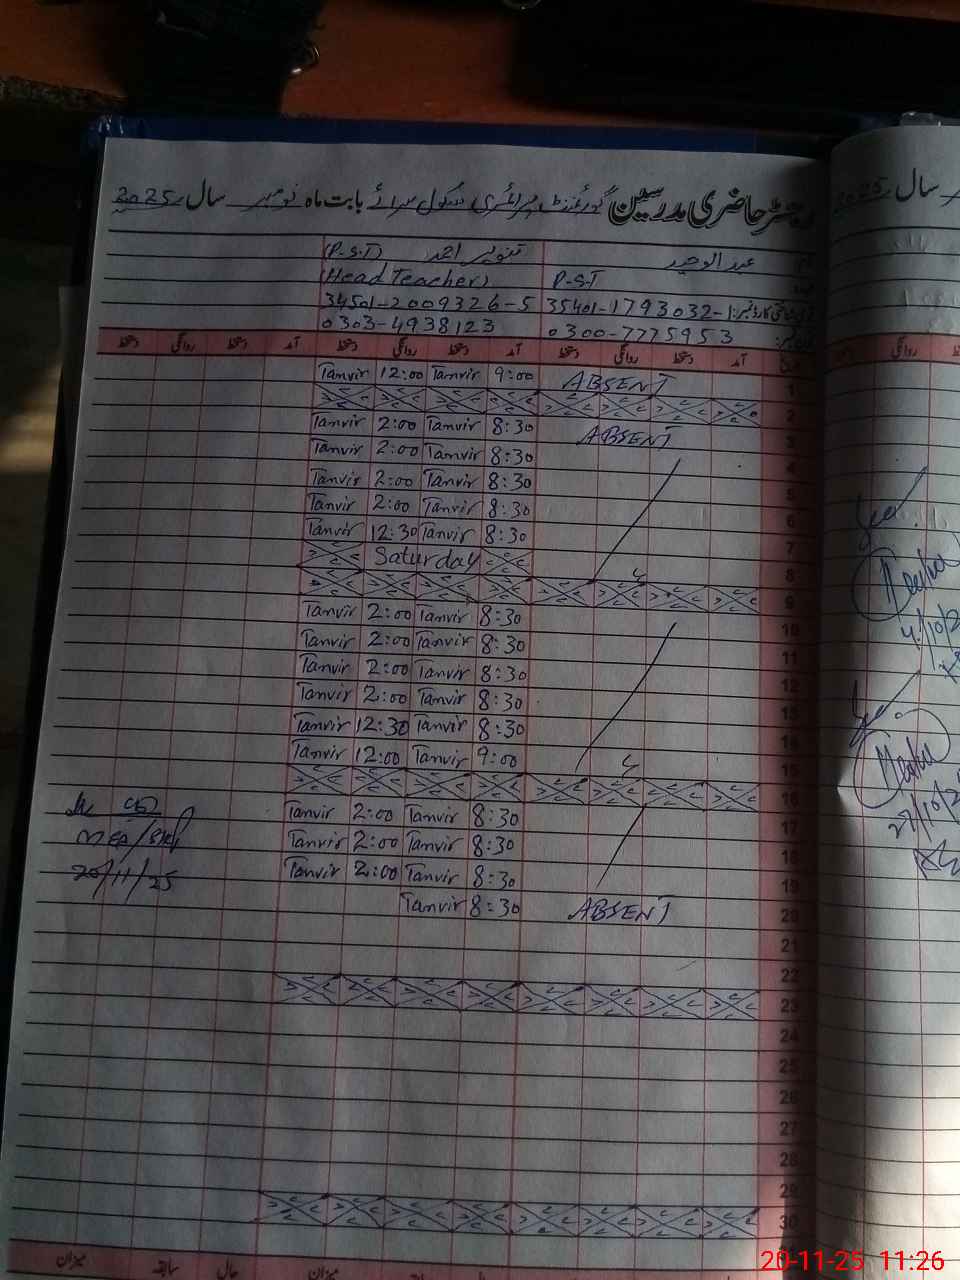 رجسٹر حاضری مدرسین گورنمنٹ پرائمری سکول سرائے بابت ماہ نومبر سال 2025
سال 2025
عبدالوحید تنویر احمد (P.S.T)
P.S.T (Head Teacher)
35401-1793032-1 34501-2009326-5
0300-7775953 0303-4938123
آمد دستخط روانگی دستخط آمد دستخط روانگی دستخط آمد دستخط روانگی دستخط
1 ABSENT 9:00 Tanvir 12:00 Tanvir
2
3 ABSENT 8:30 Tanvir 2:00 Tanvir
4 8:30 Tanvir 2:00 Tanvir
5 8:30 Tanvir 2:00 Tanvir
6 8:30 Tanvir 2:00 Tanvir
7 8:30 Tanvir 12:30 Tanvir
8 Saturday
9
10 8:30 Tanvir 2:00 Tanvir
11 8:30 Tanvir 2:00 Tanvir
12 8:30 Tanvir 2:00 Tanvir
13 8:30 Tanvir 2:00 Tanvir
14 8:30 Tanvir 12:30 Tanvir
15 9:00 Tanvir 12:00 Tanvir
16
17 8:30 Tanvir 2:00 Tanvir
18 8:30 Tanvir 2:00 Tanvir
19 8:30 Tanvir 2:00 Tanvir
20 ABSENT 8:30 Tanvir
21
22
23
24
25
26
27
28
29
30
MEA/
20/11/25
27/10/2
میزان حال سابقہ میزان
20-11-25 11:26